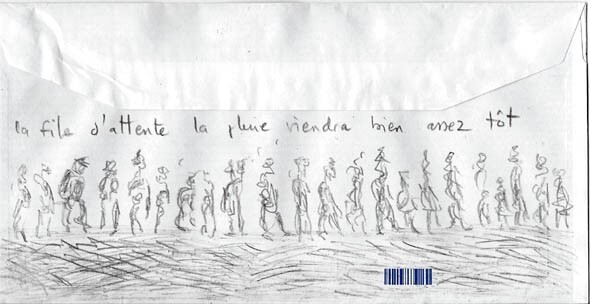 la file d'attente la pluie viendra bien assez tôt